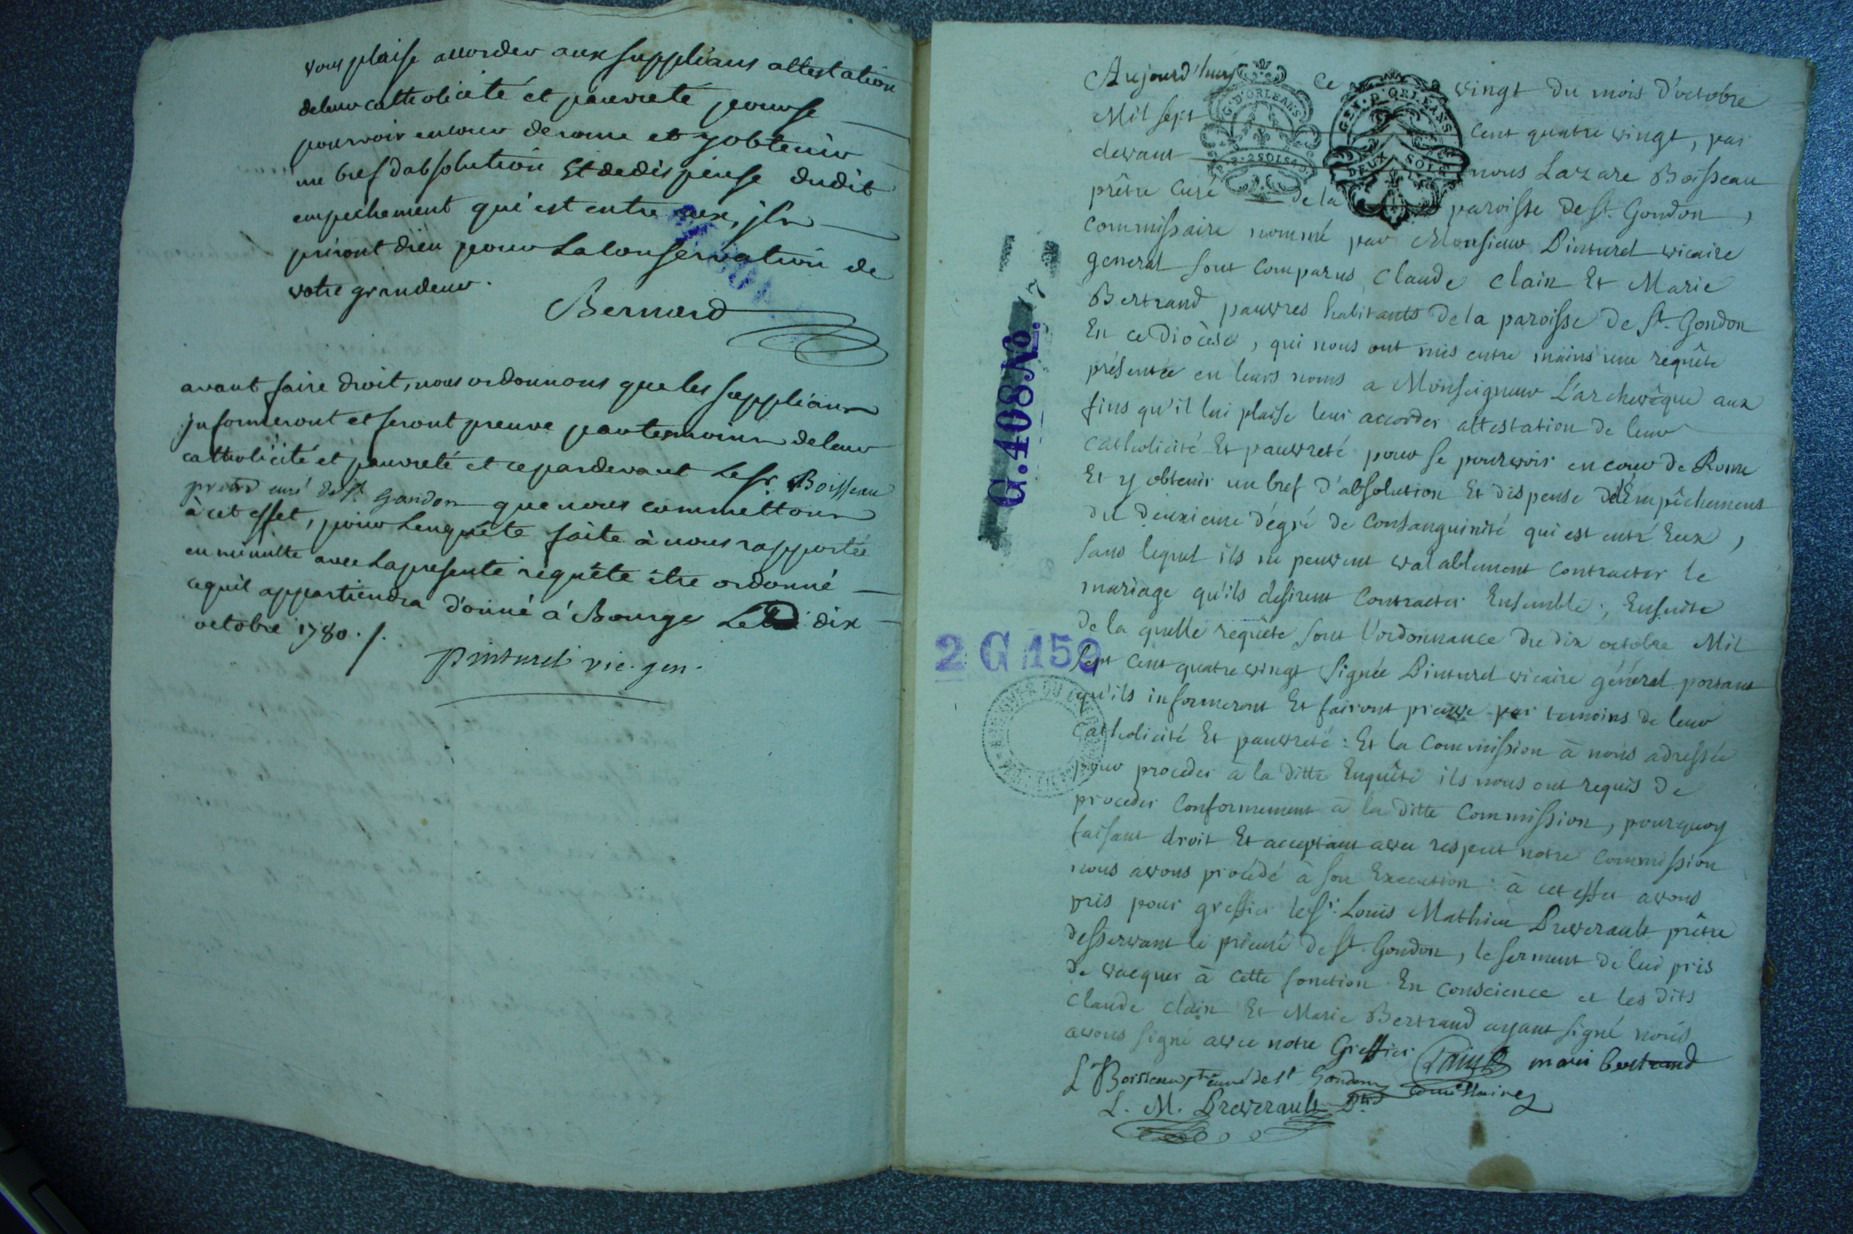 vous plaise accorder aux supplians attestation
de leur catholicité et pauvreté pour se
pourvoir en cour de rome et y obtenir
un bref d'absolution Et de dispense dudit
empechement qui est entre eux, ils
priront dieu pour La conservation de
votre grandeur.
Bernard
avant faire droit, nous ordonnons que les supplians
informeront et feront preuve par temoins de leur
catholicité et pauvreté et ce pardevant Le Sr. Boisseau
prêtre curé de St. Gondon que nous commettons
à cet effet, pour Lenquête faite à nous rapportée
en minutte avec La presente requête être ordonné
ce quil appartiendra donné à Bourges Le dix
octobre 1780 ./.
Pinturel vic. gen.
Aujourd'huy ce vingt du mois d'octobre
Mil sept Cent quatre vingt, par
devant nous Lazare Boisseau
prêtre Curé de la paroisse de St. Gondon,
Commissaire nommé par Monsieur Pinturel vicaire
general sont Comparus Claude Clain Et Marie
Bertrand pauvres habitants de la paroisse de St. Gondon
En ce Diocèse, qui nous ont mis entre mains une requête
présentée en leurs noms a Monseigneur L'archevêque aux
fins qu'il lui plaise leur accorder attestation de leur
Catholicité Et pauvreté pour se pourvoir en cour de Rome
Et y obtenir un bref d'absolution Et dispense de l'Empêchement
du deuxieme dégré de Consanguinité qui est entré Eux,
sans lequel ils ne peuvent valablement Contracter le
mariage qu'ils desirent Contracter Ensemble; Ensuite
de la quelle requête sont l'ordonnance du dix octobre Mil
sept Cent quatre vingt Signée Pinturel vicaire général portant
qu'ils informeront Et fairont preuve par temoins de leur
Catholicité Et pauvreté: Et la Commission à nous adressée
pour proceder à la ditte Enquête ils nous ont requis de
proceder Conformement à la ditte Commission, pourquoy
faisant droit Et acceptant avec respect notre Commission
nous avons procédé à son Execution: à cet effet avons
pris pour greffier le Sr. Louis Mathieu Preverault prêtre
desservant le prieuré de St. Gondon, le serment de lui pris
de vacquer à Cette fonction En Conscience et les dits
Claude Clain Et Marie Bertrand ayant signé nous
avons signé avec notre Greffier Clain marie bertrand
L Boisseau ptre curé de St Gondon Commissaire
L. M. Preverault Ptre
G. D'ORLEANS
2 SOLS
GEN. D'ORLEANS
DEUX SOLS
G. 408 No. 17
2 G 159